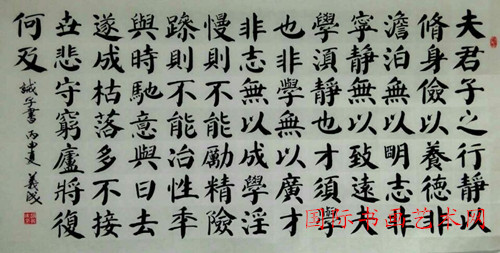 夫君子之行静以
脩身儉以養德非
澹泊無以明志非
寧靜無以致遠夫
學須靜也才須學
也非學無以廣才
非志無以成學淫
慢則不能勵精險
躁則不能治性秊
與時馳意與日去
遂成枯落多不接
世悲守窮廬將復
何及
誡子書 丙申夏 義成
国际书画艺术网